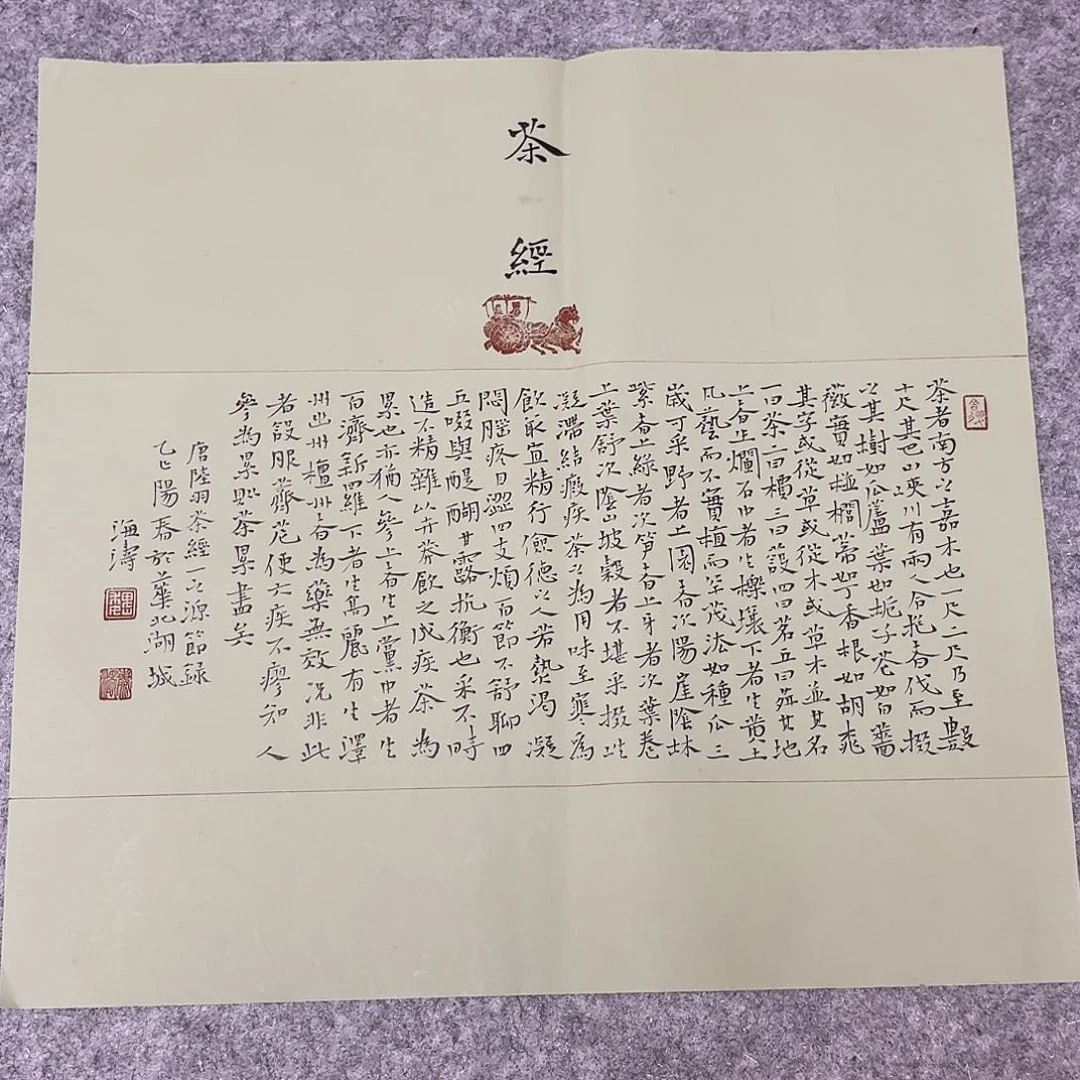 茶
經
茶者南方之嘉木也一尺二尺乃至數
十尺其巴山峽川有兩人合抱者伐而掇
之其樹如瓜蘆葉如梔子花如白薔
薇實如栟櫚蒂如丁香根如胡桃
其字或從草或從木或草木並其名
一曰茶二曰檟三曰蔎四曰茗五曰荈其地
上者生爛石中者生櫟壤下者生黄土
凡藝而不實植而罕茂法如種瓜三
歲可采野者上園者次陽崖陰林
紫者上綠者次筍者上牙者次葉卷
上葉舒次陰山坡穀者不堪采掇性
凝滯結瘕疾茶之為用味至寒為
飲最宜精行儉德之人若熱渴凝
悶腦疼目澀四支煩百節不舒聊四
五啜與醍醐甘露抗衡也采不時
造不精雜以卉莽飲之成疾茶為
累也亦猶人參上者生上黨中者生
百濟新羅下者生高麗有生澤
州幽州檀州者為藥無效況非此
者設服薺苨使六疾不瘳知人
參為累則茶累盡矣
唐陸羽茶經一之源節録
乙巳陽春於華北湖城
海濤